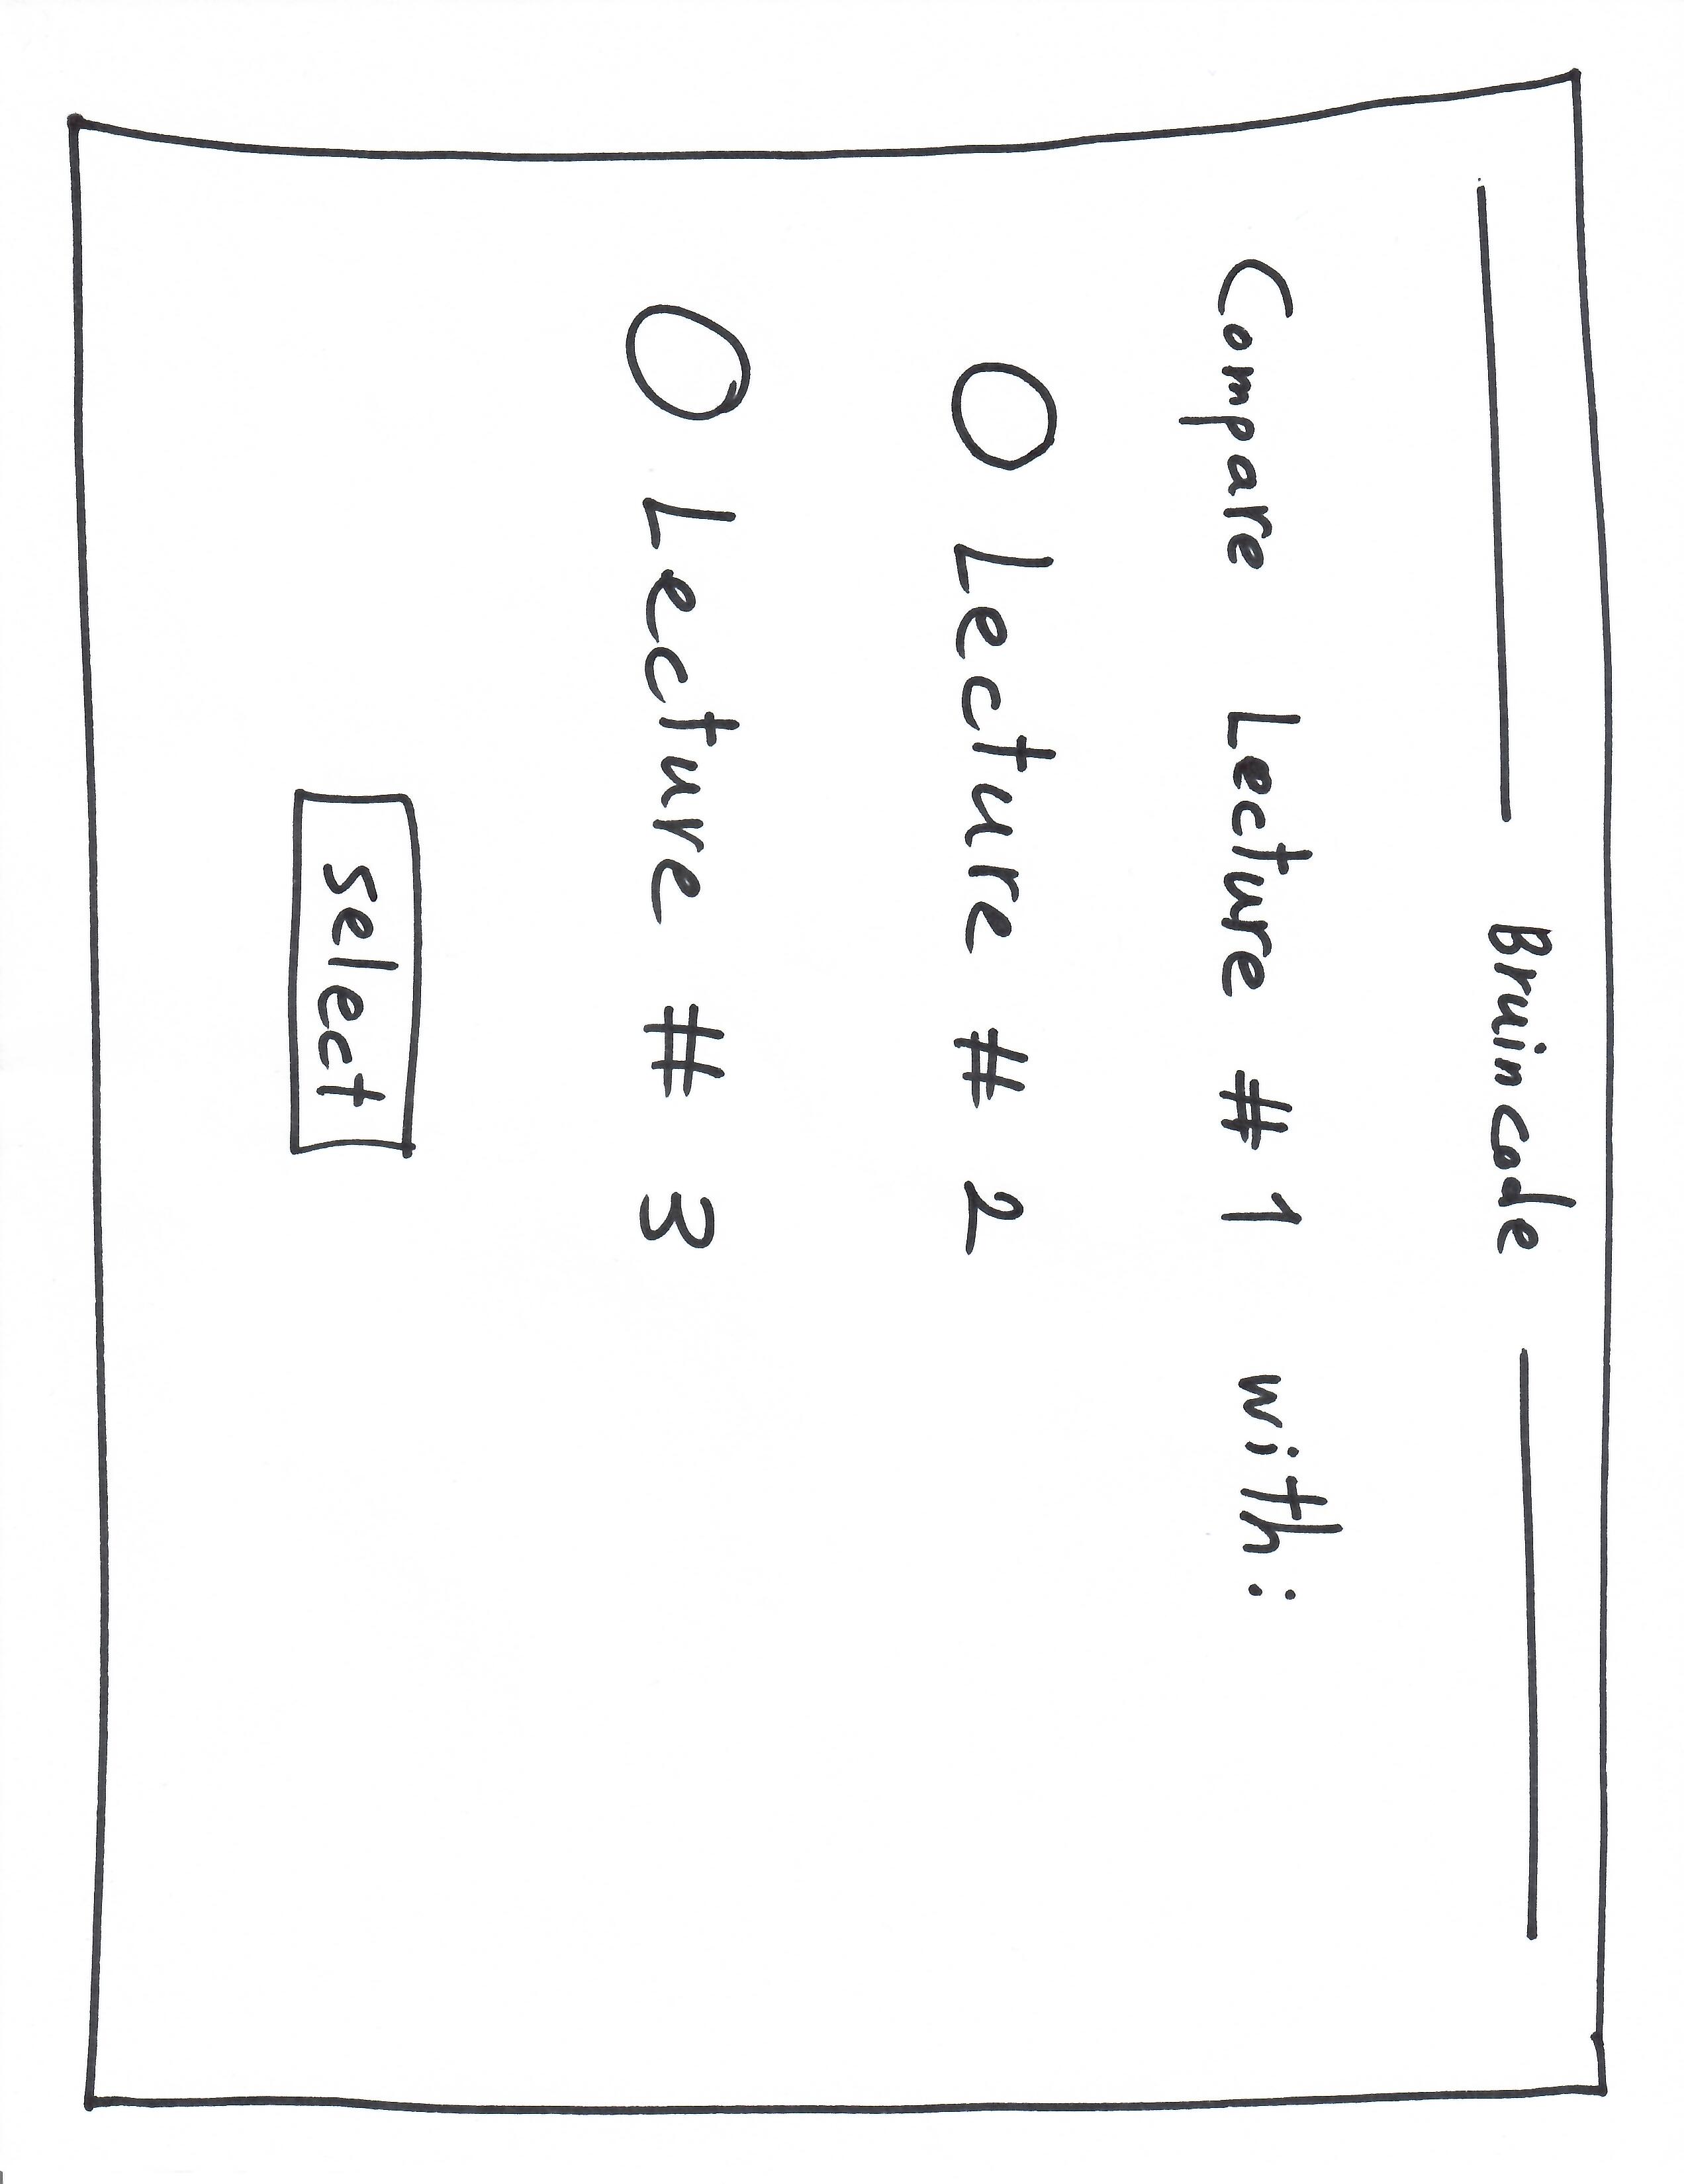 Bruincode
Compare Lecture # 1 with:
Lecture # 2
Lecture # 3
select